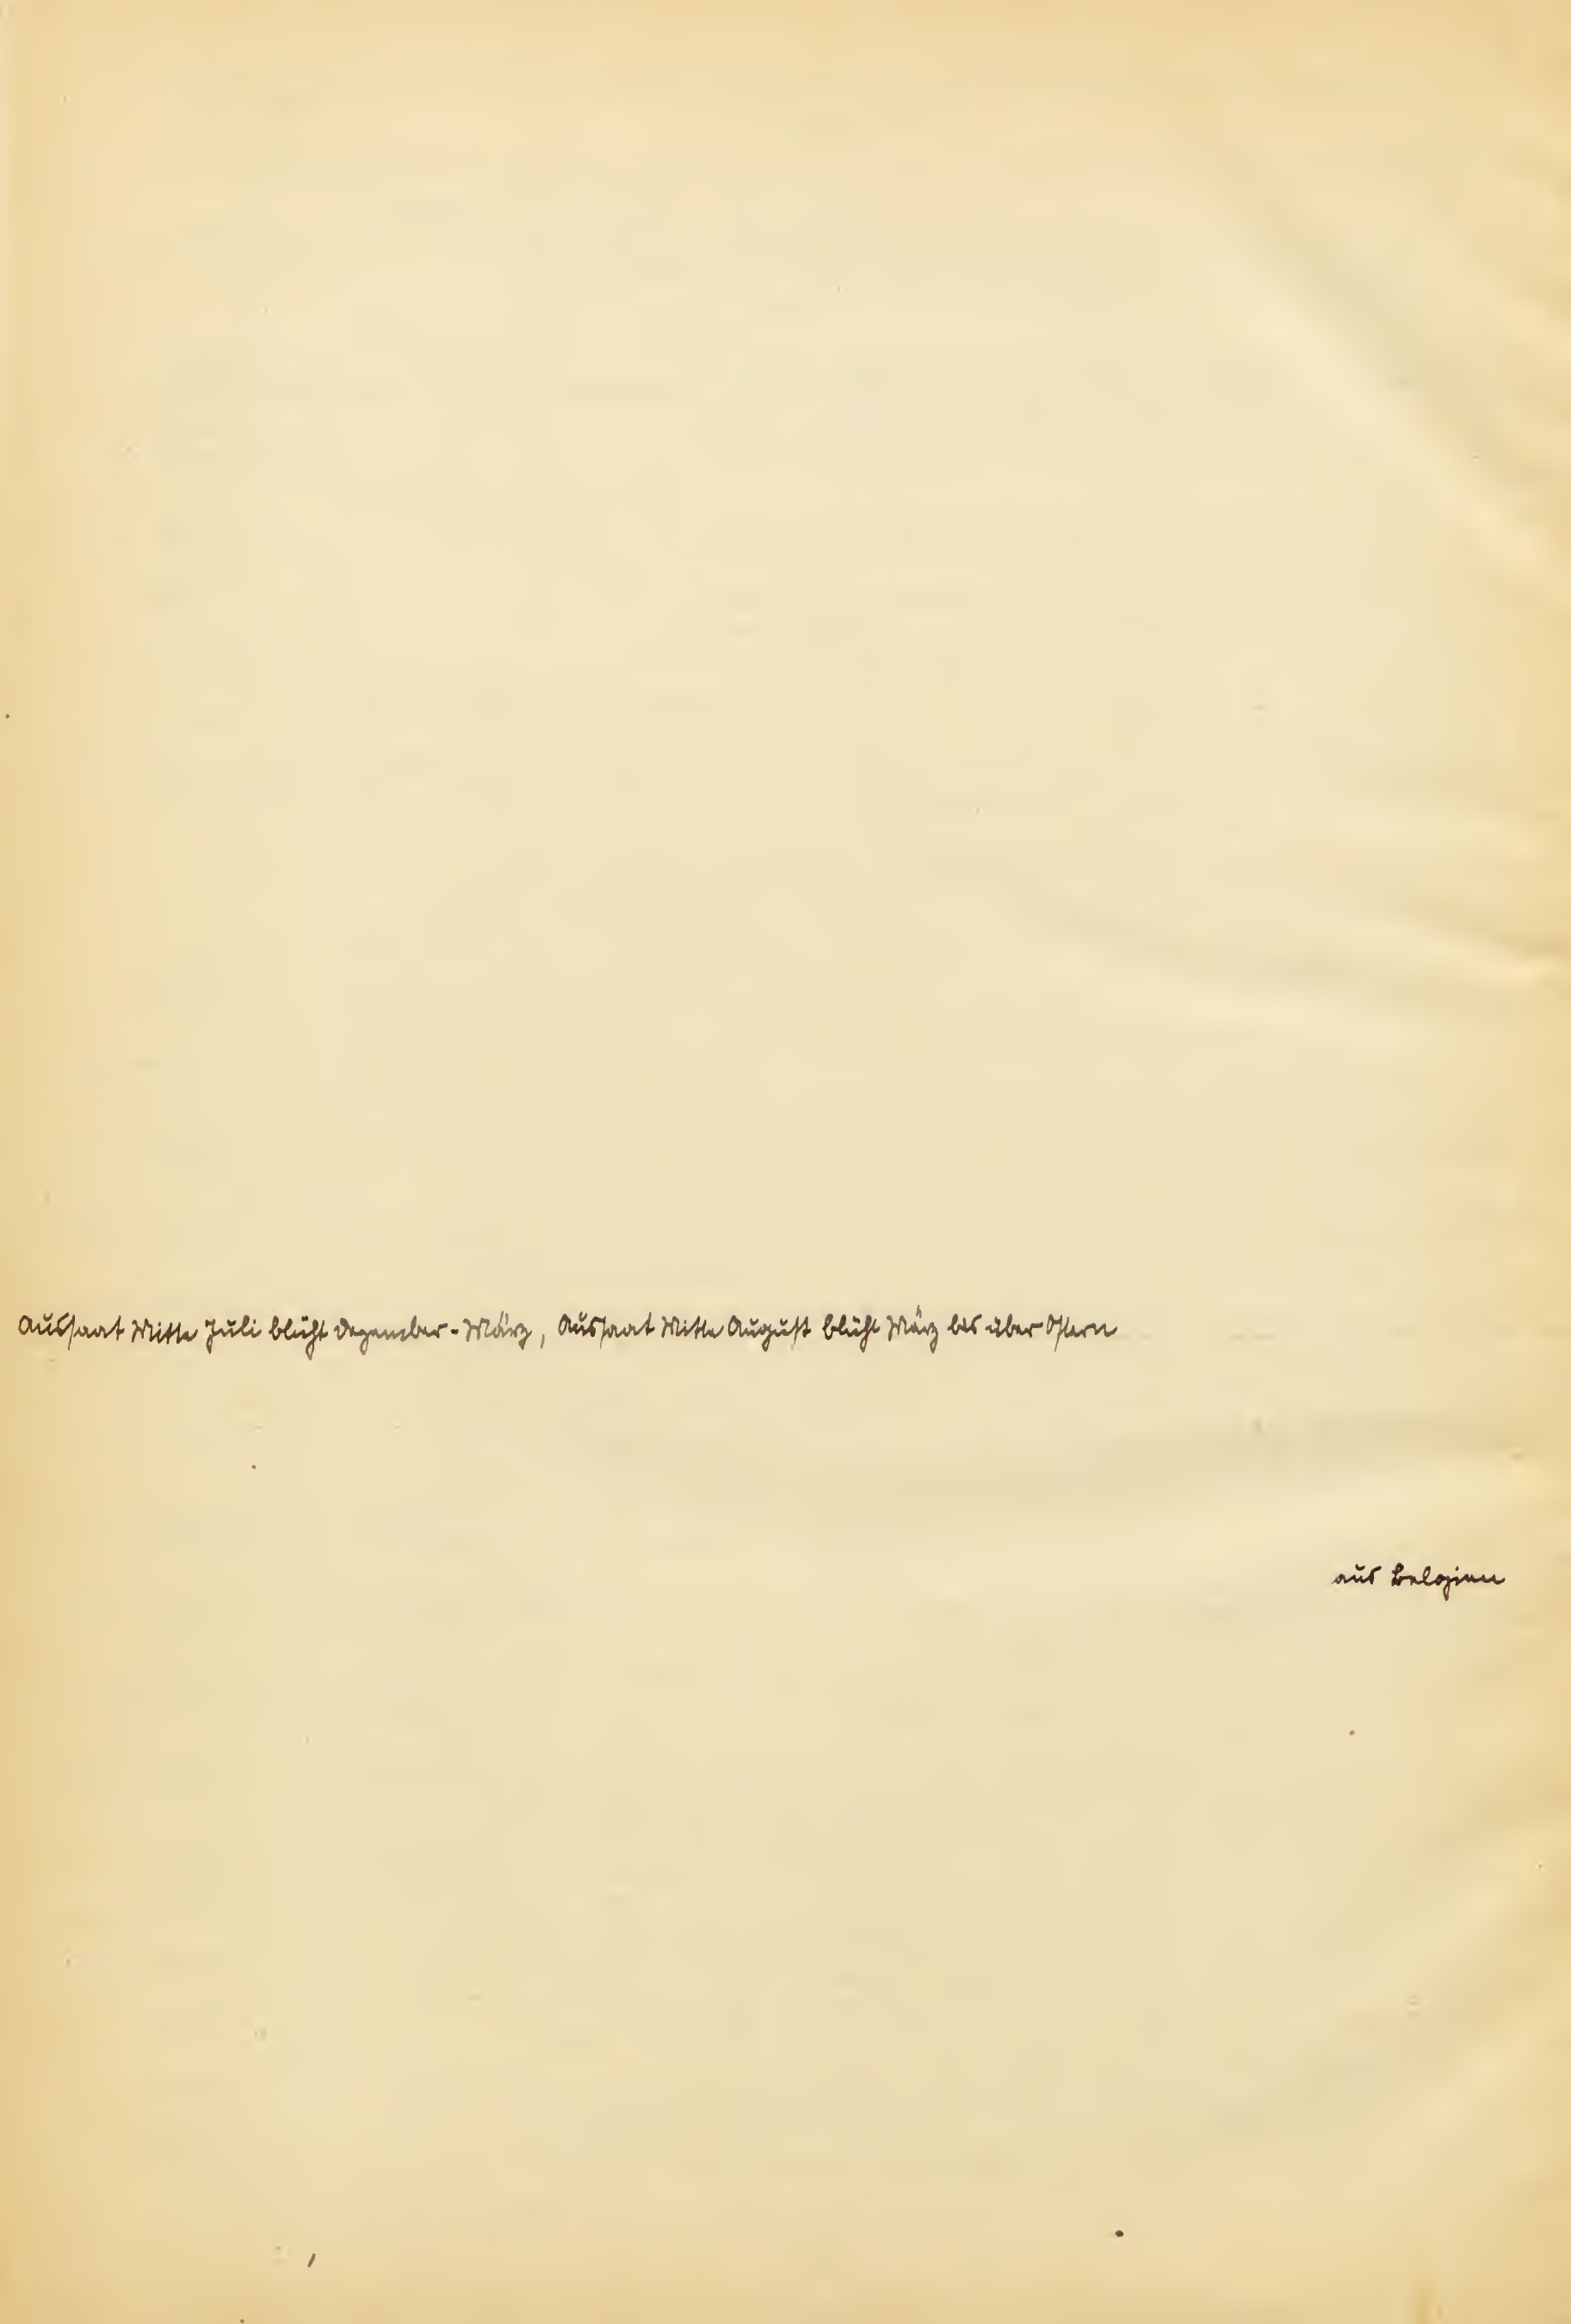 Aussaat Mitte Juli blüht Dezember - März, Aussaat Mitte August blüht März bis über Ostern
aus Belgien